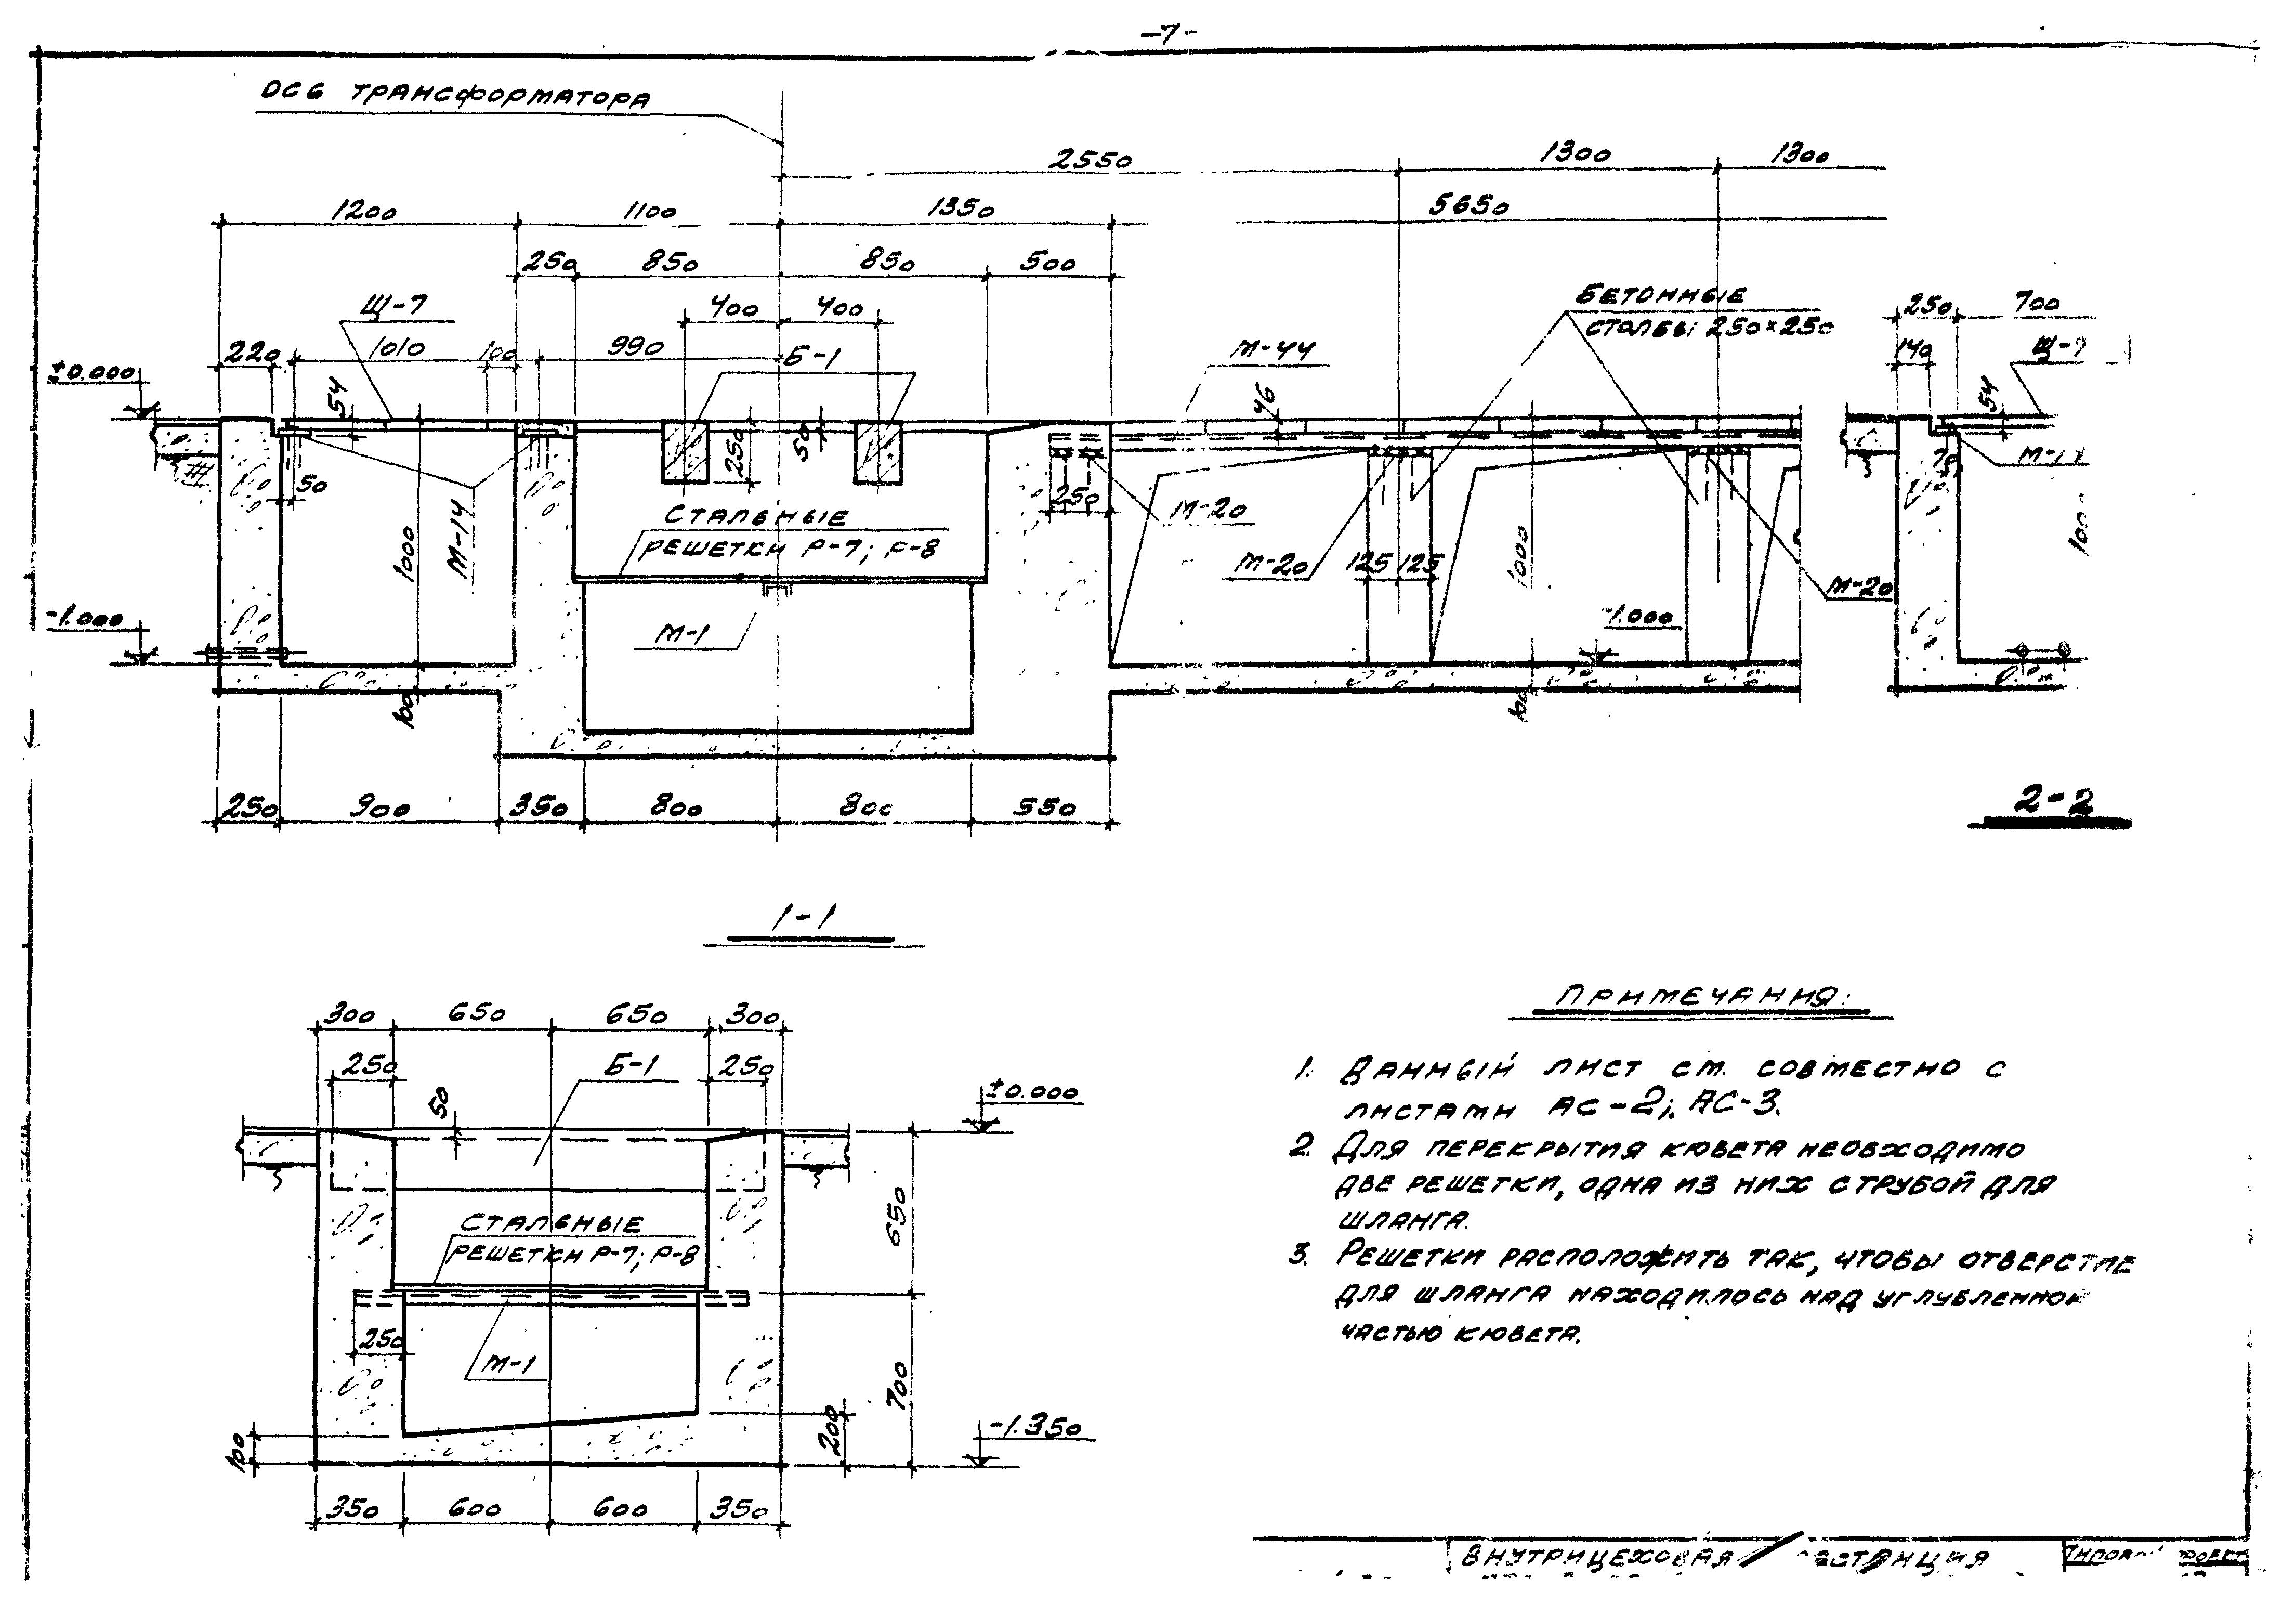 -7-
ОСЬ ТРАНСФОРМАТОРА
2550 1300 1300
1200 1100 1350 5650
250 850 850 500
Щ-7 400 400 БЕТОННЫЕ 250 700
СТОЛБЫ 250×250
220 1010 100 990 Б-1 М-44 140 Щ-7
±0.000 54 46 54
250 50
50 250 70
СТАЛЬНЫЕ М-20
РЕШЕТКИ Р-7; Р-8
1000 М-14 М-20 125 125 1000 М-20
-1.000 М-1 -1.000
100 100
250 900 350 800 800 550
2-2
1-1
300 650 650 300
250 Б-1 250
50 ±0.000
СТАЛЬНЫЕ 650
РЕШЕТКИ Р-7; Р-8
250 М-1
700
100 200 -1.350
350 600 600 350
ПРИМЕЧАНИЯ:
1. ДАННЫЙ ЛИСТ СМ. СОВМЕСТНО С
ЛИСТАМИ АС-2; АС-3.
2. ДЛЯ ПЕРЕКРЫТИЯ КЮВЕТА НЕОБХОДИМО
ДВЕ РЕШЕТКИ, ОДНА ИЗ НИХ С ТРУБОЙ ДЛЯ
ШЛАНГА.
3. РЕШЕТКИ РАСПОЛОЖИТЬ ТАК, ЧТОБЫ ОТВЕРСТИЕ
ДЛЯ ШЛАНГА НАХОДИЛОСЬ НАД УГЛУБЛЕННОЙ
ЧАСТЬЮ КЮВЕТА.
ВНУТРИЦЕХОВАЯ